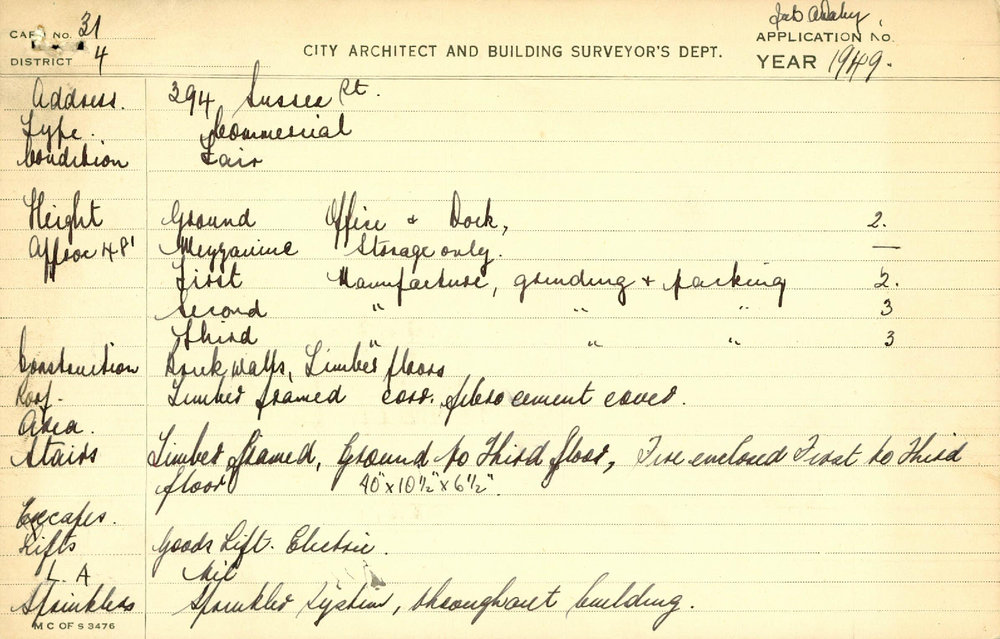 CARD No. 31
DISTRICT 4
CITY ARCHITECT AND BUILDING SURVEYOR'S DEPT.
APPLICATION No.
YEAR 1949.
Address. 394 Sussex St.
Type. Commercial
Condition Fair
Height Ground Office & Dock, 2.
Approx 48' Mezzanine Storage only. —
First Manufacture, grinding & packing 2.
Second " " " 3
Third " " " 3
Construction Brick walls, Timber floors
Roof. Timber framed corr. fibro cement cover.
Area.
Stairs Timber framed, Ground to Third floor, Fire enclosed First to Third
floor 40" x 10½" x 6½".
Escapes.
Lifts Goods Lift. Electric.
L. A Nil
Sprinklers Sprinkler System, throughout building.
M C OF S 3476